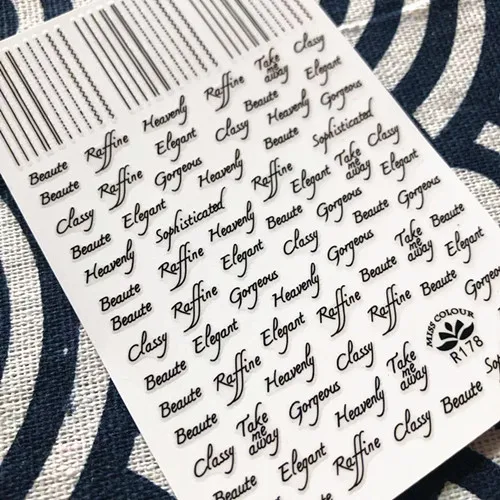 Beaute Raffine Heavenly Raffine Take me away Classy
Beaute Raffine Elegant Classy Beaute Elegant
Classy Elegant Gorgeous Heavenly Beaute Heavenly Gorgeous
Beaute Sophisticated Raffine Elegant Sophisticated Take me away Classy
Heavenly Raffine Heavenly Beaute Gorgeous Elegant
Beaute Elegant Classy Beaute Gorgeous
Beaute Raffine Gorgeous Heavenly Gorgeous Take me away Heavenly
Classy Elegant Elegant Raffine Beaute Elegant
Beaute Heavenly Raffine Beaute Gorgeous
Beaute Raffine Classy
MISS COLOUR
R178
Beaute Take me away Gorgeous Heavenly Take me away
Classy Classy Raffine Classy Beaute So
Beaute Elegant